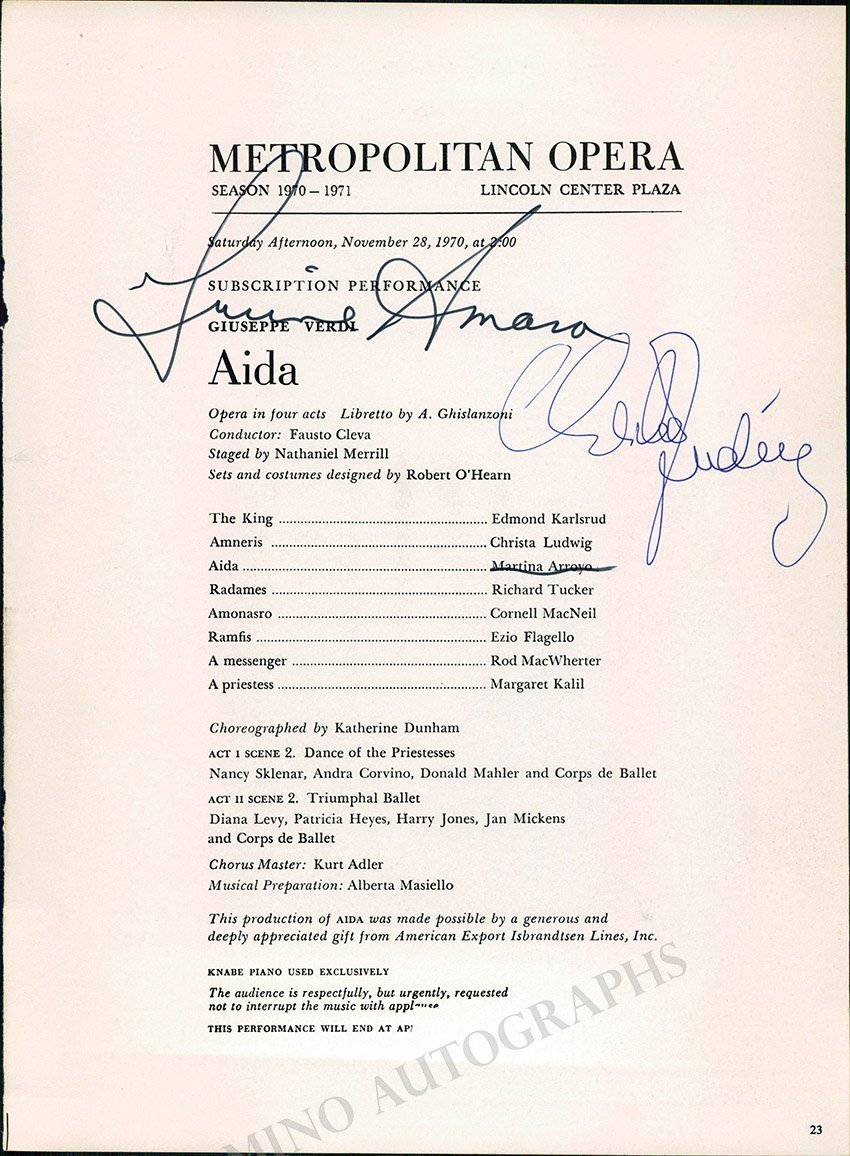 METROPOLITAN OPERA
SEASON 1970–1971 LINCOLN CENTER PLAZA
Saturday Afternoon, November 28, 1970, at 2:00
SUBSCRIPTION PERFORMANCE
Lucine Amara
GIUSEPPE VERDI
Aida
Christa Ludwig
Opera in four acts Libretto by A. Ghislanzoni
Conductor: Fausto Cleva
Staged by Nathaniel Merrill
Sets and costumes designed by Robert O'Hearn
The King ........ Edmond Karlsrud
Amneris ........ Christa Ludwig
Aida ........ Martina Arroyo
Radames ........ Richard Tucker
Amonasro ........ Cornell MacNeil
Ramfis ........ Ezio Flagello
A messenger ........ Rod MacWherter
A priestess ........ Margaret Kalil
Choreographed by Katherine Dunham
ACT I SCENE 2. Dance of the Priestesses
Nancy Sklenar, Andra Corvino, Donald Mahler and Corps de Ballet
ACT II SCENE 2. Triumphal Ballet
Diana Levy, Patricia Heyes, Harry Jones, Jan Mickens
and Corps de Ballet
Chorus Master: Kurt Adler
Musical Preparation: Alberta Masiello
This production of AIDA was made possible by a generous and
deeply appreciated gift from American Export Isbrandtsen Lines, Inc.
KNABE PIANO USED EXCLUSIVELY
The audience is respectfully, but urgently, requested
not to interrupt the music with applause
THIS PERFORMANCE WILL END AT AP
MINO AUTOGRAPHS
23